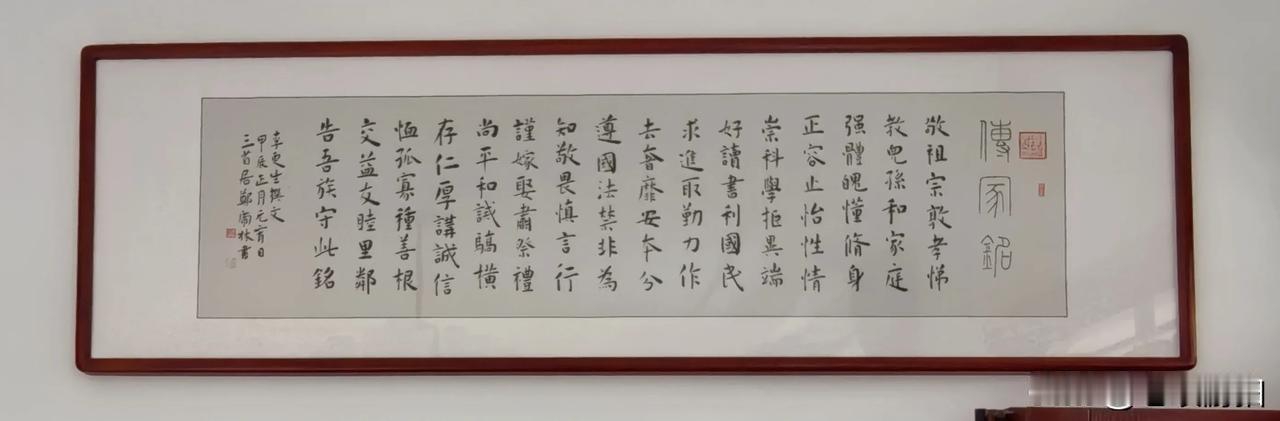 傳家銘
敬祖宗敦孝悌
教皃孫和家庭
强體魄懂脩身
正容止怡性情
崇科學拒異端
好讀書利國民
求進取勤力作
去奢靡安本分
遵國法禁非為
知敬畏慎言行
謹嫁娶肅祭禮
尚平和誡驕橫
存仁厚講誠信
恤孤寡種善根
交益友睦里鄰
告吾族守此銘
李更生撰文
甲辰正月元宵日
三省居鄭尚林書